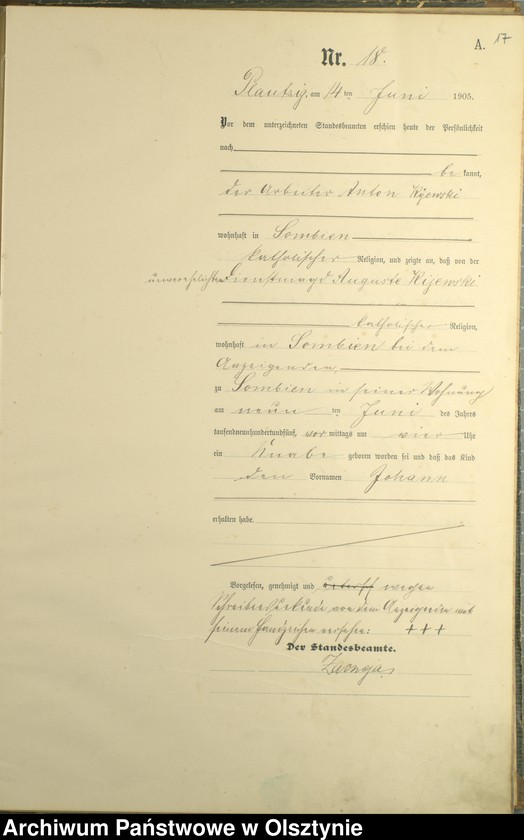 A. 17
Nr. 18.
Plautzig, am 14 ten Juni 1905.
Vor dem unterzeichneten Standesbeamten erschien heute der Persönlichkeit
nach
be kannt,
der Arbeiter Anton Kijewski
wohnhaft in Sombien
katholischer Religion, und zeigte an, daß von der
unverehelichten Dienstmagd Auguste Kijewski
katholischer Religion,
wohnhaft in Sombien bei dem
Anzeigenden
zu Sombien in seiner Wohnung
am neun ten Juni des Jahres
tausendneunhundertundfünf, vor mittags um vier Uhr
ein Knabe geboren worden sei und daß das Kind
den Vornamen Johann
erhalten habe.
Vorgelesen, genehmigt und wegen
Schreibensunkunde von dem Anzeigenden mit
seinem Handzeichen versehen: +++
Der Standesbeamte.
Archiwum Państwowe w Olsztynie